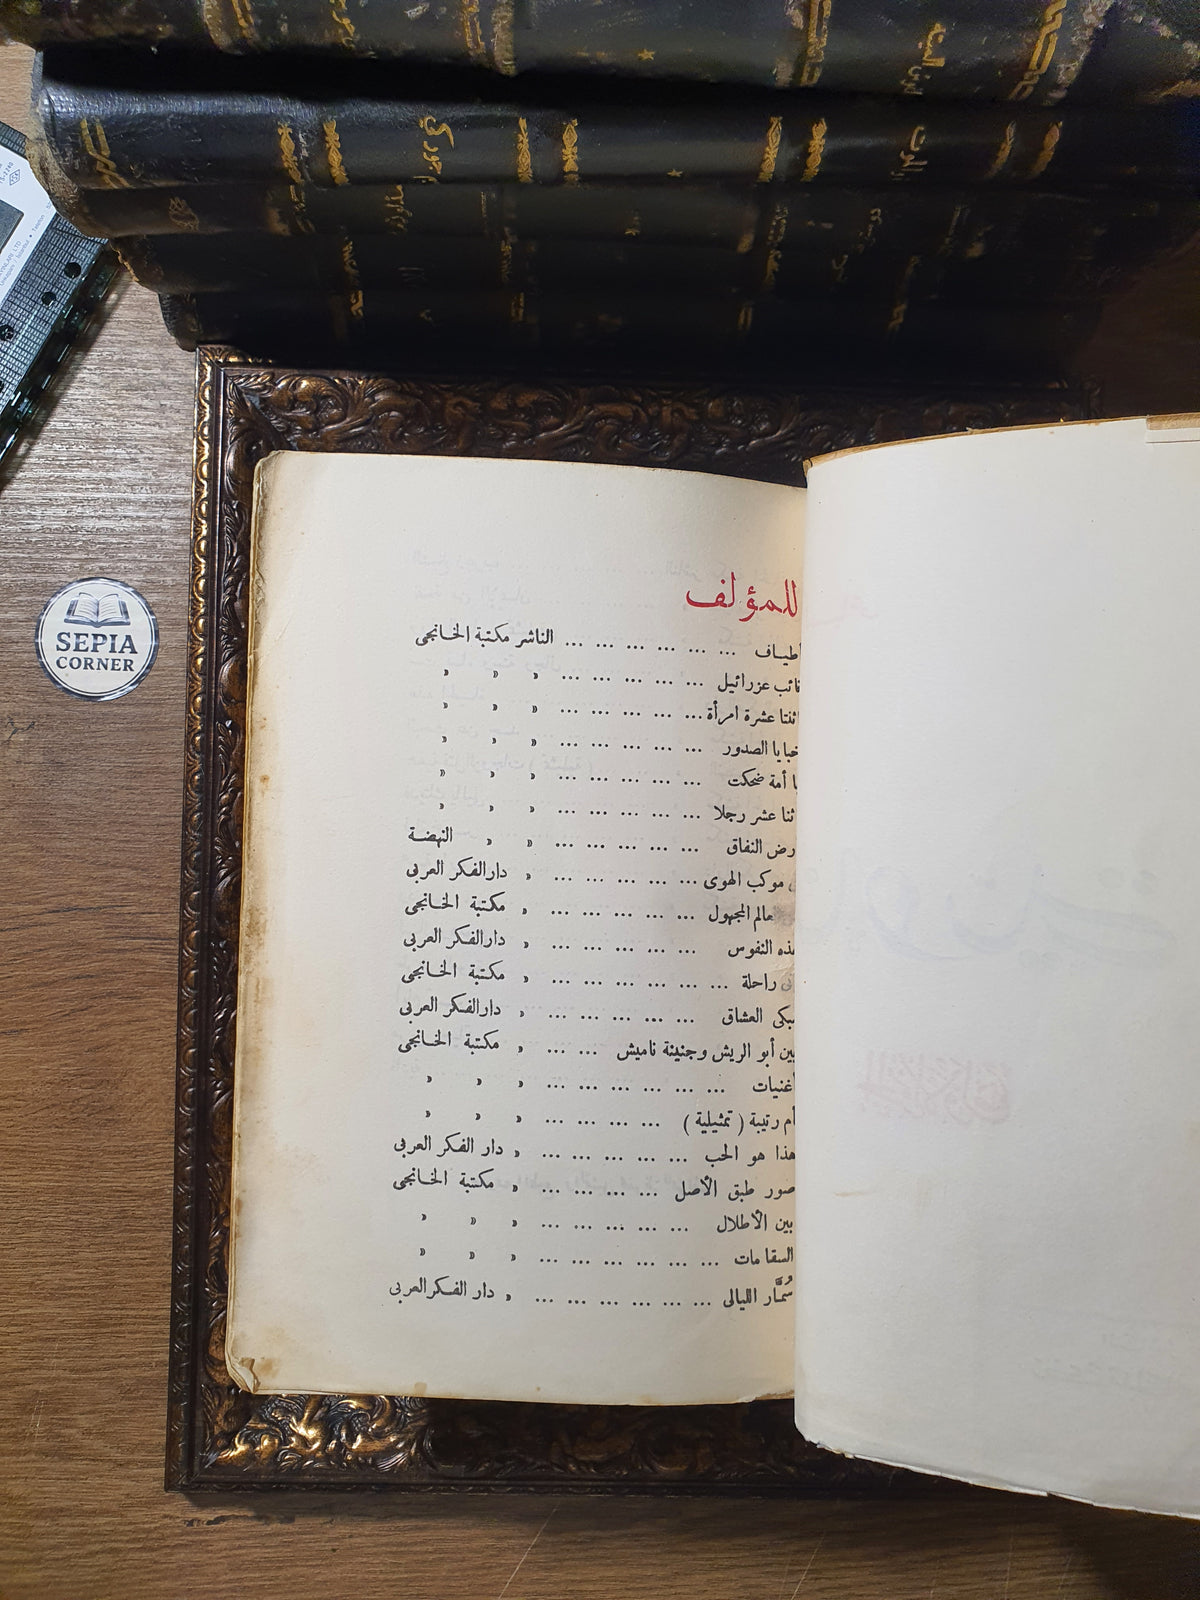 SEPIA
CORNER
للمؤلف
أطياف ... ... ... ... ... ... الناشر مكتبة الخانجى
نائب عزرائيل ... ... ... ... ... » » »
اثنتا عشرة امرأة ... ... ... ... ... » » »
خبايا الصدور ... ... ... ... ... » » »
يا أمة ضحكت ... ... ... ... ... » » »
اثنا عشر رجلا ... ... ... ... ... » » »
أرض النفاق ... ... ... ... ... » » النهضة
فى موكب الهوى ... ... ... ... ... » دار الفكر العربى
العالم المجهول ... ... ... ... ... » مكتبة الخانجى
هذه النفوس ... ... ... ... ... » دار الفكر العربى
إنى راحلة ... ... ... ... ... ... » مكتبة الخانجى
مبكى العشاق ... ... ... ... ... » دار الفكر العربى
بين أبو الريش وجنينة ناميش ... ... » مكتبة الخانجى
أغنيات ... ... ... ... ... ... » » »
أم رتيبة ( تمثيلية ) ... ... ... ... » » »
هذا هو الحب ... ... ... ... ... » دار الفكر العربى
صور طبق الأصل ... ... ... ... » مكتبة الخانجى
بين الأطلال ... ... ... ... ... » » »
السقا مات ... ... ... ... ... ... » » »
سُمَّار الليالى ... ... ... ... ... ... » دار الفكر العربى